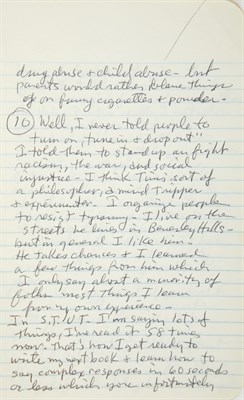 drug abuse & child abuse - but
parents would rather blame things
on funny cigarettes & powder.
(10) Well, I never told people to
turn on, tune in & drop out."
I told them to stand up an fight
racism, the war, and social
injustice - I think Tim's sort of
a philosopher, a mind tripper
& experimenter. I organize people
to resist tyranny - I live on the
streets he lives in Beverley Hills -
but in general I like him.
He takes chances & I learned
a few things from him which
I only say about a minority of
folks most things I learn
from my own experience -
In S.T.U.T - I'm saying lots of
things, I've read it 58 times
now. That's how I get ready to
write my next book & learn how to
say complex responses in 60 seconds
or less which your infortunately